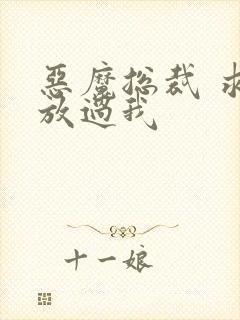 惡魔总裁 求
放過我
十一娘